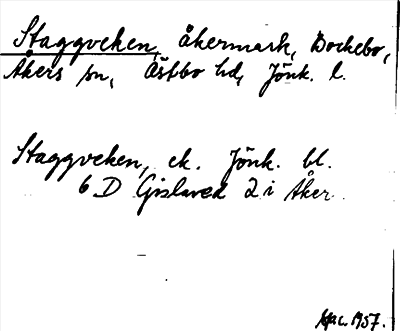 Staggveken, åkermark, Bockebo,
Åkers sn, Östbo hd, Jönk. l.
Staggveken, ek. Jönk. bl.
6 D Gislaved 2 i Åker
1957.